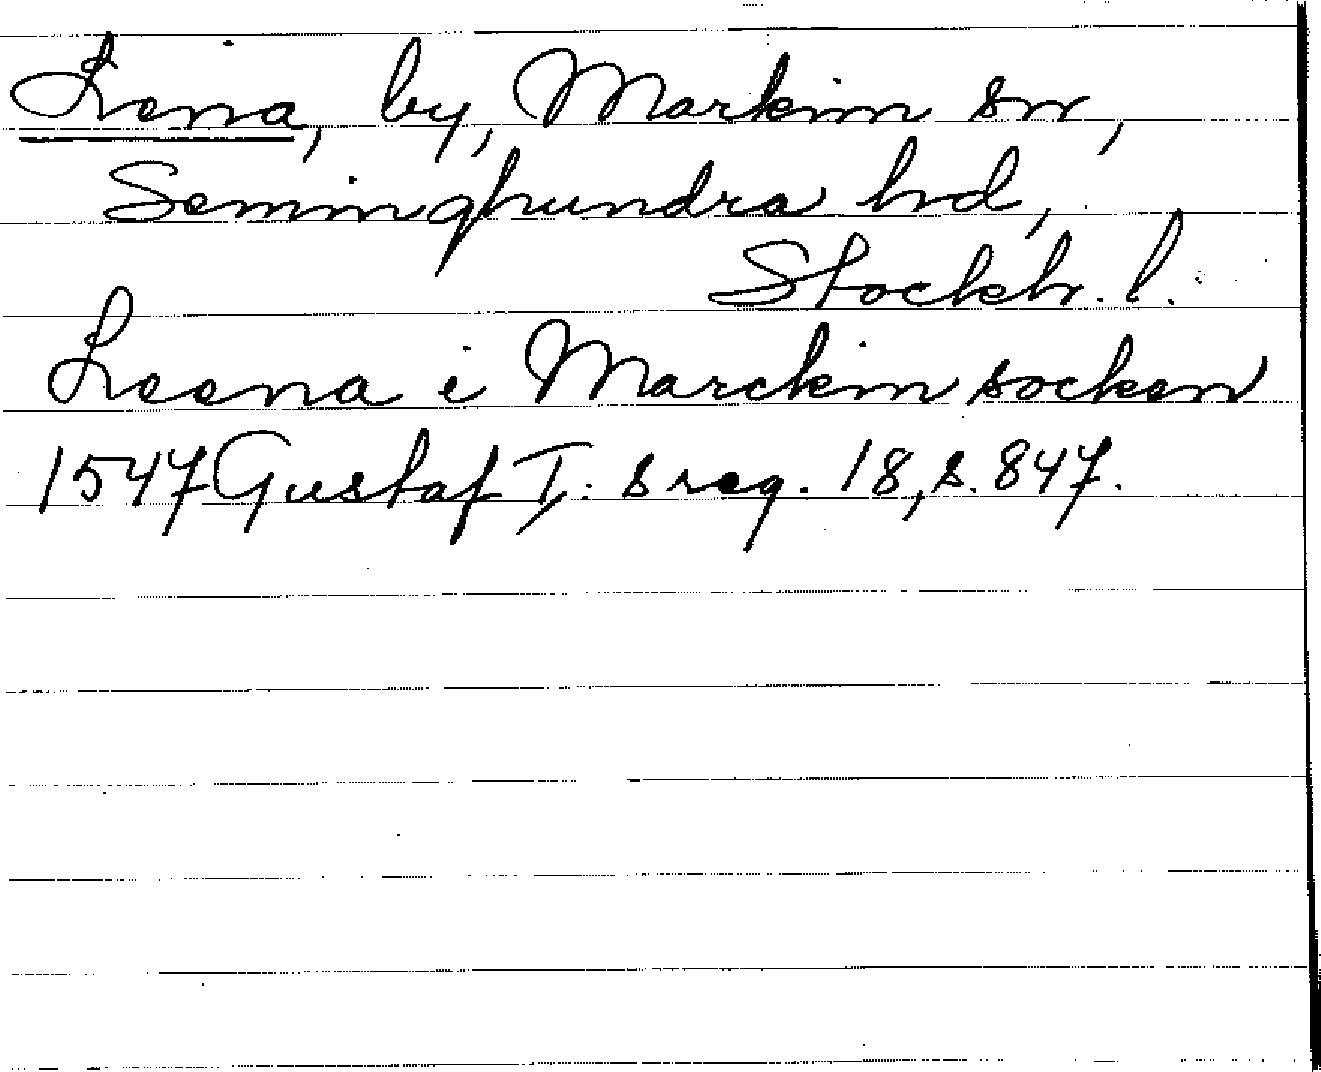 Lena, by, Markim sn,
Seminghundra hd,
Stockh. l.
Leena i Marckim socken
1547 Gustaf I:s reg. 18, s. 847.